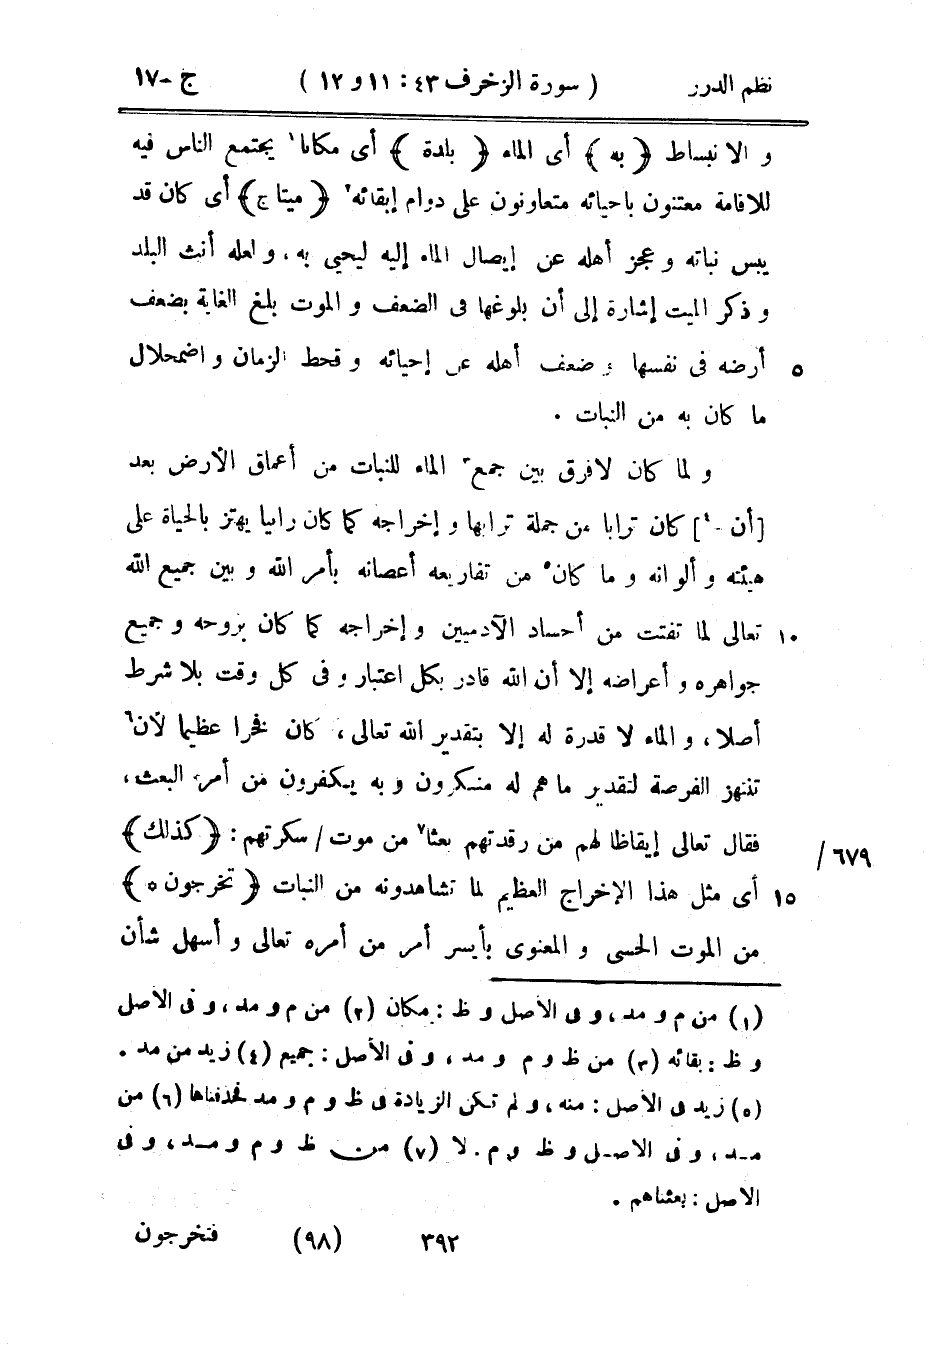 نظم الدرر ( سورة الزخرف ٤٣ : ١١ و ١٢ ) ج - ١٧
و الانبساط ﴿ به ﴾ أى الماء ﴿ بلدة ﴾ أى مكانا١ يجتمع الناس فيه
للاقامة معتنون باحيائه متعاونون على دوام إبقائه٢ ﴿ ميتا ج﴾ أى كان قد
يبس نباته و عجز أهله عن إيصال الماء إليه ليحيى به ، و لعله أنث البلد
و ذكر الميت إشارة إلى أن بلوغها فى الضعف و الموت بلغ الغاية بضعف
٥ أرضه فى نفسها و ضعف أهله عن إحيائه و قحط الزمان و اضمحلال
ما كان به من النبات .
و لما كان لا فرق بين جمع٣ الماء للنبات من أعماق الأرض بعد
[أن -٤] كان ترابا من جملة ترابها و إخراجه كما كان رابيا يهتز بالحياة على
هيئته و ألوانه و ما كان٥ من تفاريعه أغصانه بأمر الله و بين جميع الله
١٠ تعالى لما تفتت من أجساد الآدميين و إخراجه كما كان بروحه و جميع
جواهره و أعراضه إلا أن الله قادر بكل اعتبار و فى كل وقت بلا شرط
أصلا ، و الماء لا قدرة له إلا بتقدير الله تعالى ، كان فخرا عظيما لأن٦
تنتهز الفرصة لتقدير ما هم له منكرون و به يكفرون من أمر البعث ،
فقال تعالى إيقاظا لهم من رقدتهم بعثا٧ من موت / سكرتهم : ﴿ كذلك ﴾ / ٦٧٩
١٥ أى مثل هذا الإخراج العظيم لما تشاهدونه من النبات ﴿ تخرجون ه ﴾
من الموت الحسى و المعنوى بأيسر أمر من أمره تعالى و أسهل شأن
(١) من م و مد ، و فى الأصل و ظ : مكان (٢) من م و مد ، و فى الأصل
و ظ : بقائه (٣) من ظ و م و مد ، و فى الأصل : جميع (٤) زيد من مد .
(٥) زيد فى الأصل : منه ، و لم تكن الزيادة فى ظ و م و مد فحذفناها (٦) من
مد ، و فى الاصل و ظ و م . لا (٧) من ظ و م و مد ، و فى
الاصل : بعثناهم .
٣٩٢ (٩٨) فتخرجون